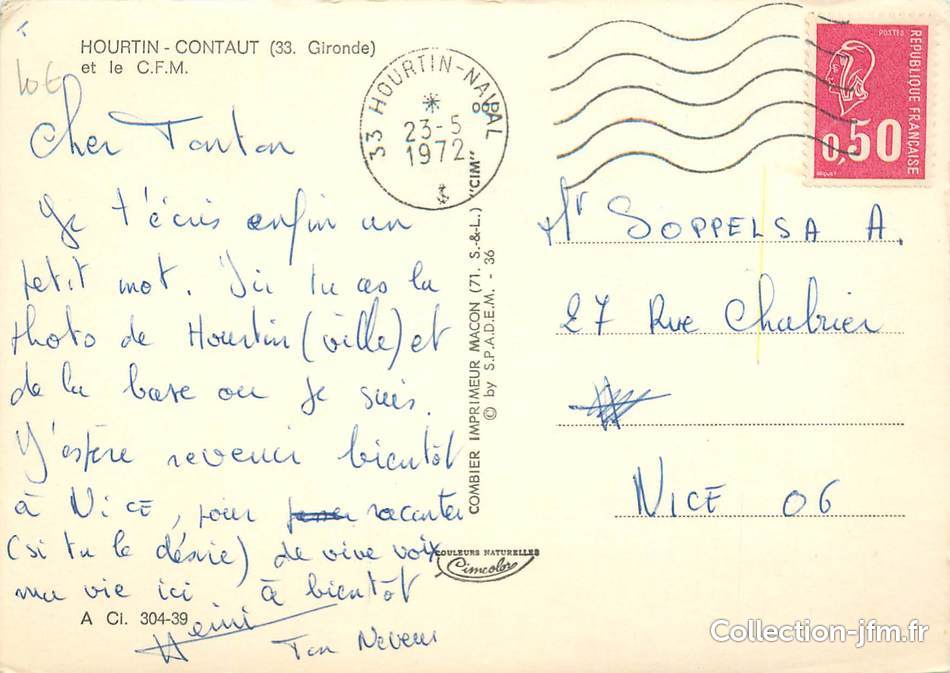 HOURTIN - CONTAUT (33. Gironde)
et le C.F.M.
10€
Cher Tonton
Je t'écris enfin un
petit mot. Ici tu as la
photo de Hourtin (ville) et
de la base ou je suis.
J'espère revenir bientôt
à NICE, pour raconter
(si tu le désire) de vive voix
ma vie ici à bientôt
A Ci. 304-39
Ton Neveu
33 HOURTIN-NAVAL
23-5
1972
COMBIER IMPRIMEUR MACON (71. S.-&-L.) "CIM"
© by S.P.A.D.E.M. - 36
COULEURS NATURELLES
Cimcolor
POSTES
REPUBLIQUE FRANÇAISE
0,50
Mr SOPPELSA A.
27 Rue Chabrier
NICE 06
Collection-jfm.fr